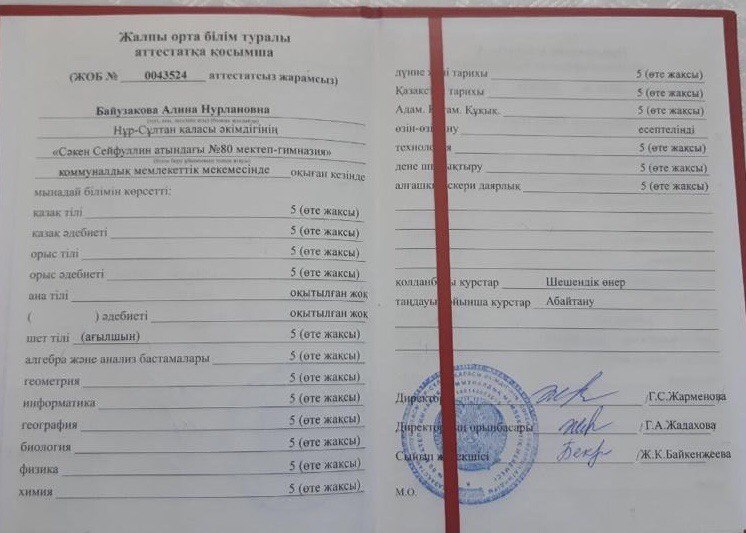 Жалпы орта білім туралы
аттестатқа қосымша
(ЖОБ № 0043524 аттестатсыз жарамсыз)
Байузакова Алина Нурлановна
Нұр-Сұлтан қаласы әкімдігінің
«Сәкен Сейфуллин атындағы №80 мектеп-гимназия»
коммуналдық мемлекеттік мекемесінде оқыған кезінде
мынадай білімін көрсетті:
қазақ тілі 5 (өте жақсы)
қазақ әдебиеті 5 (өте жақсы)
орыс тілі 5 (өте жақсы)
орыс әдебиеті 5 (өте жақсы)
ана тілі оқытылған жоқ
( ) әдебиеті оқытылған жоқ
шет тілі (ағылшын) 5 (өте жақсы)
алгебра және анализ бастамалары 5 (өте жақсы)
геометрия 5 (өте жақсы)
информатика 5 (өте жақсы)
география 5 (өте жақсы)
биология 5 (өте жақсы)
физика 5 (өте жақсы)
химия 5 (өте жақсы)
тарихы 5 (өте жақсы)
тарихы 5 (өте жақсы)
Адам. Құқық. 5 (өте жақсы)
есептелінді
5 (өте жақсы)
дене 5 (өте жақсы)
алғашқы даярлық 5 (өте жақсы)
курстар Шешендік өнер
курстар Абайтану
/Г.С.Жарменова
орынбасары /Г.А.Жадахова
/Ж.К.Байкенжеева
М.О.